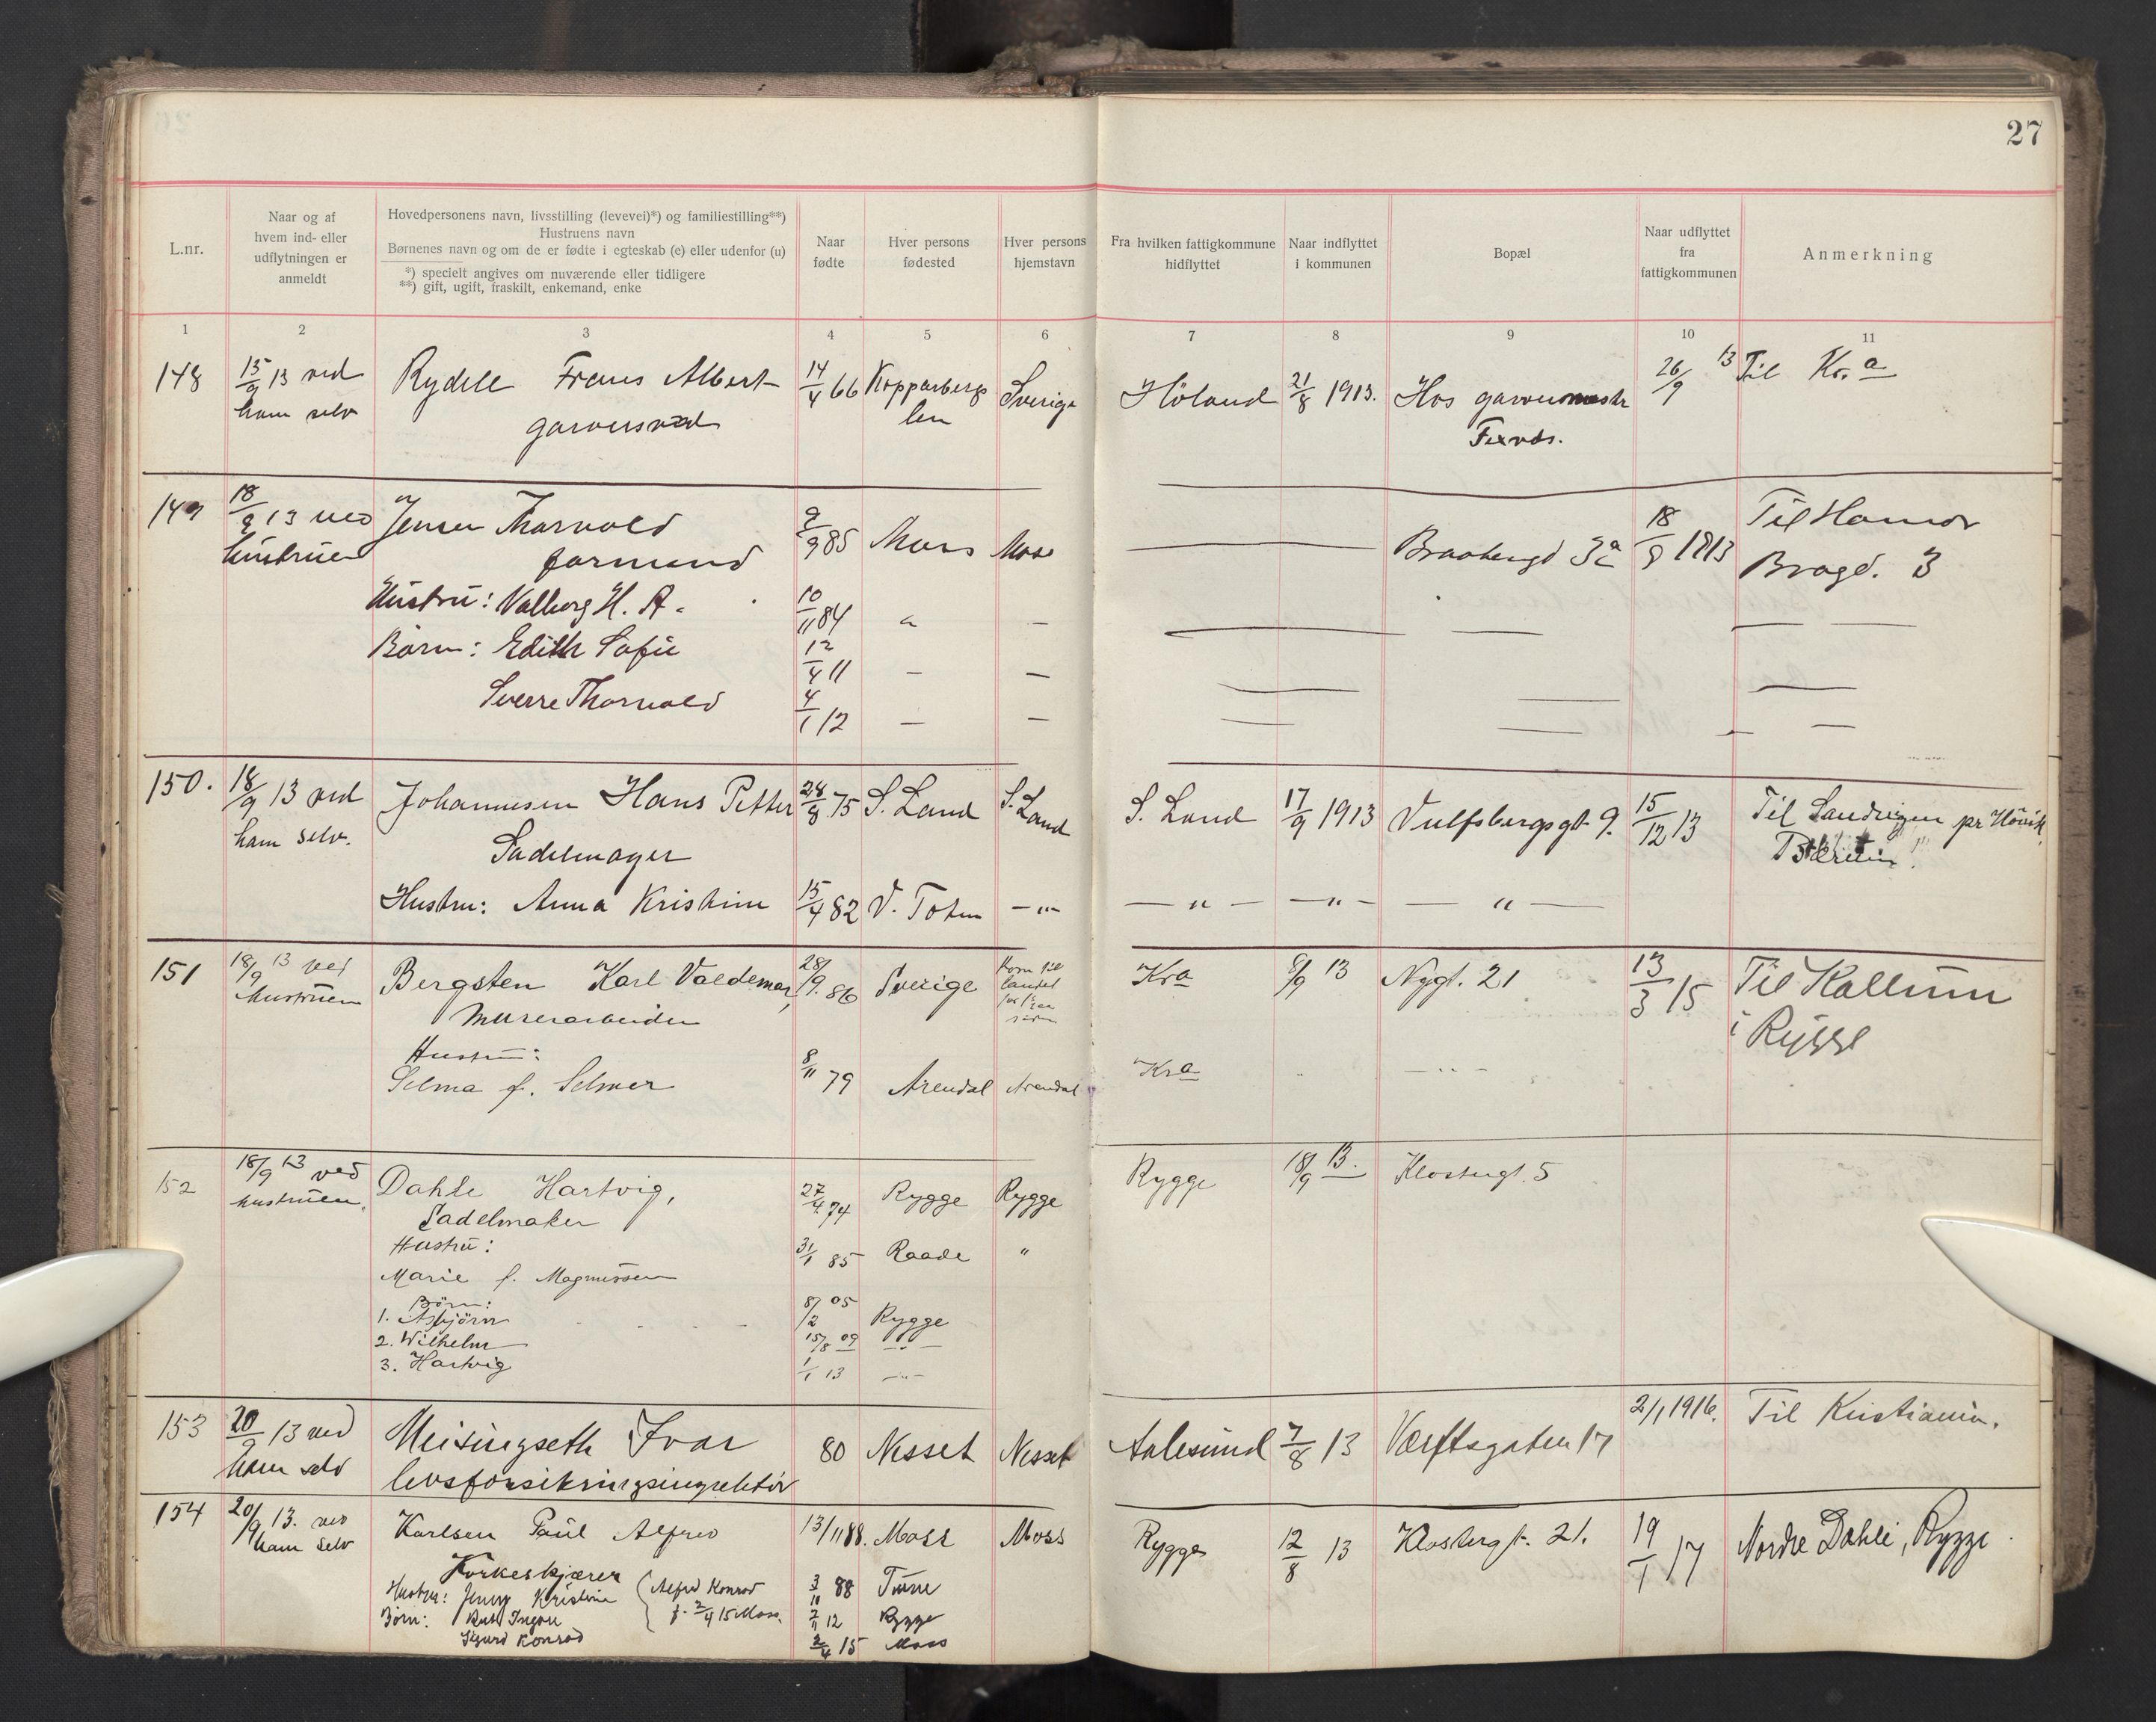 27
L.nr.
Naar og af
hvem ind- eller
udflytningen er
anmeldt
Hovedpersonens navn, livsstilling (levevei)*) og familiestilling**)
Hustruens navn
Børnenes navn og om de er fødte i egteskab (e) eller udenfor (u)
*) specielt angives om nuværende eller tidligere
**) gift, ugift, fraskilt, enkemand, enke
Naar
fødte
Hver persons
fødested
Hver persons
hjemstavn
Fra hvilken fattigkommune
hidflyttet
Naar indflyttet
i kommunen
Bopæl
Naar udflyttet
fra
fattigkommunen
Anmerkning
1 2 3 4 5 6 7 8 9 10 11
148 15/9 13 ved Rydell Frans Albert 14/4 66 Kopparbergs Sverige Høland 21/8 1913. Hos garvermestr 26/9 13 Til Kr.a
ham selv garversvend len
149 18/9 13 ved Jensen Thorvald 9/9 85 Moss Moss 18/9 1913 Til Hamar
hustruen formand Braagd. 3
Hustru: Valborg H. A. 10/11 84
Børn: Edith Sofie 12/4 11 — —
Sverre Thorvald 4/1 12 — —
150. 18/9 13 ved Johannesen Hans Petter 28/8 75 S. Land S. Land S. Land 17/9 1913 Vulfsbergsgt. 9. 15/12 13 Til Sandvigen pr Høvik
ham selv. Sadelmager Bærum
Hustru: Anna Kristine 15/4 82 V. Toten —"— —"— —"— —"—
151 18/9 13 ved Bergsten Karl Valdemar, 28/9. 86 Sverige Kom til Kra 8/9 13 Nygt. 21 13/3 15 Til Kallum
hustruen Murerarbeider landet i Rygge
Hustru:
Selma f. Selmer 8/11 79 Arendal Arendal Kra " —"—
152 18/9 13 ved Dahle Hartvig, 27/4 74 Rygge Rygge Rygge 18/9 13. Klostergt. 5
hustruen. Sadelmaker
Hustru: 31/1 85 Raade "
Marie f. Magnussen
Børn:
1. Asbjörn 8/2 05 Rygge
2. Wilhelm 15/8 09 —"—
3. Hartvig 1/1 13 —"—
153 20/9 13 ved Meisingseth Ivar 80 Nesset Nesset Aalesund 7/8 13 Værftsgaten 17 2/1 1916. Til Kristiania.
ham selv livsforsikringsinspektør
154 20/9 13. ved Karlsen Paul Alfred 13/11 88. Moss Moss Rygge 12/8 13 Klostergt. 21. 19/1 17 Nordre Dahle, Rygge.
ham selv Korkeskjærer
Hustru: Jenny Kristine Alfred Konrad 3/10 88 Tune
Børn: Ruth f. 2/4 15 Moss. 12 Rygge
Sigurd Konrad 2/4 15 Moss